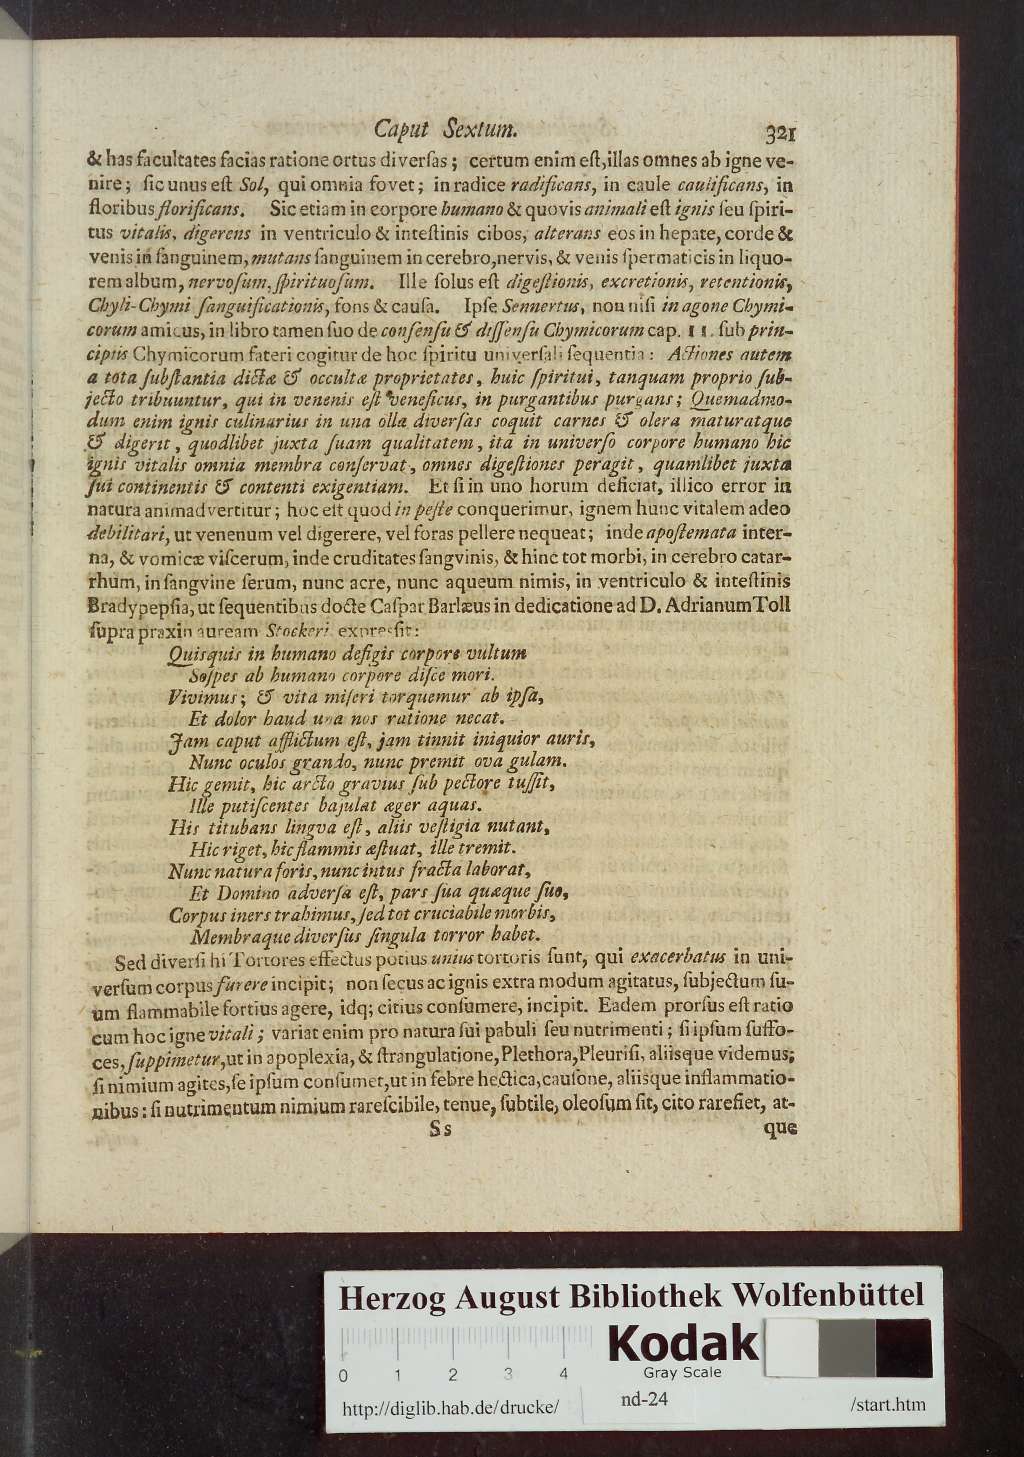 Caput Sextum. 321
& has facultates facias ratione ortus diverſas; certum enim eſt, illas omnes ab igne ve-
nire; ſic unus eſt Sol, qui omnia fovet; in radice radificans, in caule caulificans, in
floribus florificans. Sic etiam in corpore humano & quovis animali eſt ignis ſeu ſpiri-
tus vitalis, digerens in ventriculo & inteſtinis cibos, alterans eos in hepate, corde &
venis in ſanguinem, mutans ſanguinem in cerebro, nervis, & venis ſpermaticis in liquo-
rem album, nervoſum, ſpirituoſum. Ille ſolus eſt digeſtionis, excretionis, retentionis,
Chyli-Chymi ſanguificationis, fons & cauſa. Ipſe Sennertus, non niſi in agone Chymi-
corum amicus, in libro tamen ſuo de conſenſu & diſſenſu Chymicorum cap. 11. ſub prin-
cipiis Chymicorum fateri cogitur de hoc ſpiritu univerſali ſequentia: Actiones autem
a tota ſubſtantia dictæ & occultæ proprietates, huic ſpiritui, tanquam proprio ſub-
jecto tribuuntur, qui in venenis eſt veneficus, in purgantibus purgans; Quemadmo-
dum enim ignis culinarius in una olla diverſas coquit carnes & olera maturatque
& digerit, quodlibet juxta ſuam qualitatem, ita in univerſo corpore humano hic
ignis vitalis omnia membra conſervat, omnes digeſtiones peragit, quamlibet juxta
ſui continentis & contenti exigentiam. Et ſi in uno horum deficiat, illico error in
natura animadvertitur; hoc eſt quod in peſte conquerimur, ignem hunc vitalem adeo
debilitari, ut venenum vel digerere, vel foras pellere nequeat; inde apoſtemata inter-
na, & vomicæ viſcerum, inde cruditates ſangvinis, & hinc tot morbi, in cerebro catar-
rhum, in ſangvine ſerum, nunc acre, nunc aqueum nimis, in ventriculo & inteſtinis
Bradypepſia, ut ſequentibus docte Caſpar Barlæus in dedicatione ad D. Adrianum Toll
ſupra praxin auream Stockeri expreſſit:
Quisquis in humano defigis corpore vultum
Soſpes ab humano corpore diſce mori.
Vivimus; & vita miſeri torquemur ab ipſa,
Et dolor haud una nos ratione necat.
Jam caput afflictum eſt, jam tinnit iniquior auris,
Nunc oculos grando, nunc premit ova gulam.
Hic gemit, hic arcto gravius ſub pectore tuſſit,
Ille putiſcentes bajulat æger aquas.
His titubans lingva eſt, aliis veſtigia nutant,
Hic riget, hic flammis æſtuat, ille tremit.
Nunc natura foris, nunc intus fracta laborat,
Et Domino adverſa eſt, pars ſua quæque ſuo,
Corpus iners trahimus, ſed tot cruciabile morbis,
Membraque diverſus ſingula torror habet.
Sed diverſi hi Tortores effectus potius unius tortoris ſunt, qui exacerbatus in uni-
verſum corpus furere incipit; non ſecus ac ignis extra modum agitatus, ſubjectum ſu-
um flammabile fortius agere, idq; citius conſumere, incipit. Eadem prorſus eſt ratio
cum hoc igne vitali; variat enim pro natura ſui pabuli ſeu nutrimenti; ſi ipſum ſuffo-
ces, ſuppimetur, ut in apoplexia, & ſtrangulatione, Plethora, Pleuriſi, aliisque videmus;
ſi nimium agites, ſe ipſum conſumet, ut in febre hectica, cauſone, aliisque inflammatio-
nibus: ſi nutrimentum nimium rareſcibile, tenue, ſubtile, oleoſum ſit, cito rarefiet, at-
Ss que
Herzog August Bibliothek Wolfenbüttel
Kodak
Gray Scale
0 1 2 3 4
http://diglib.hab.de/drucke/ nd-24 /start.htm